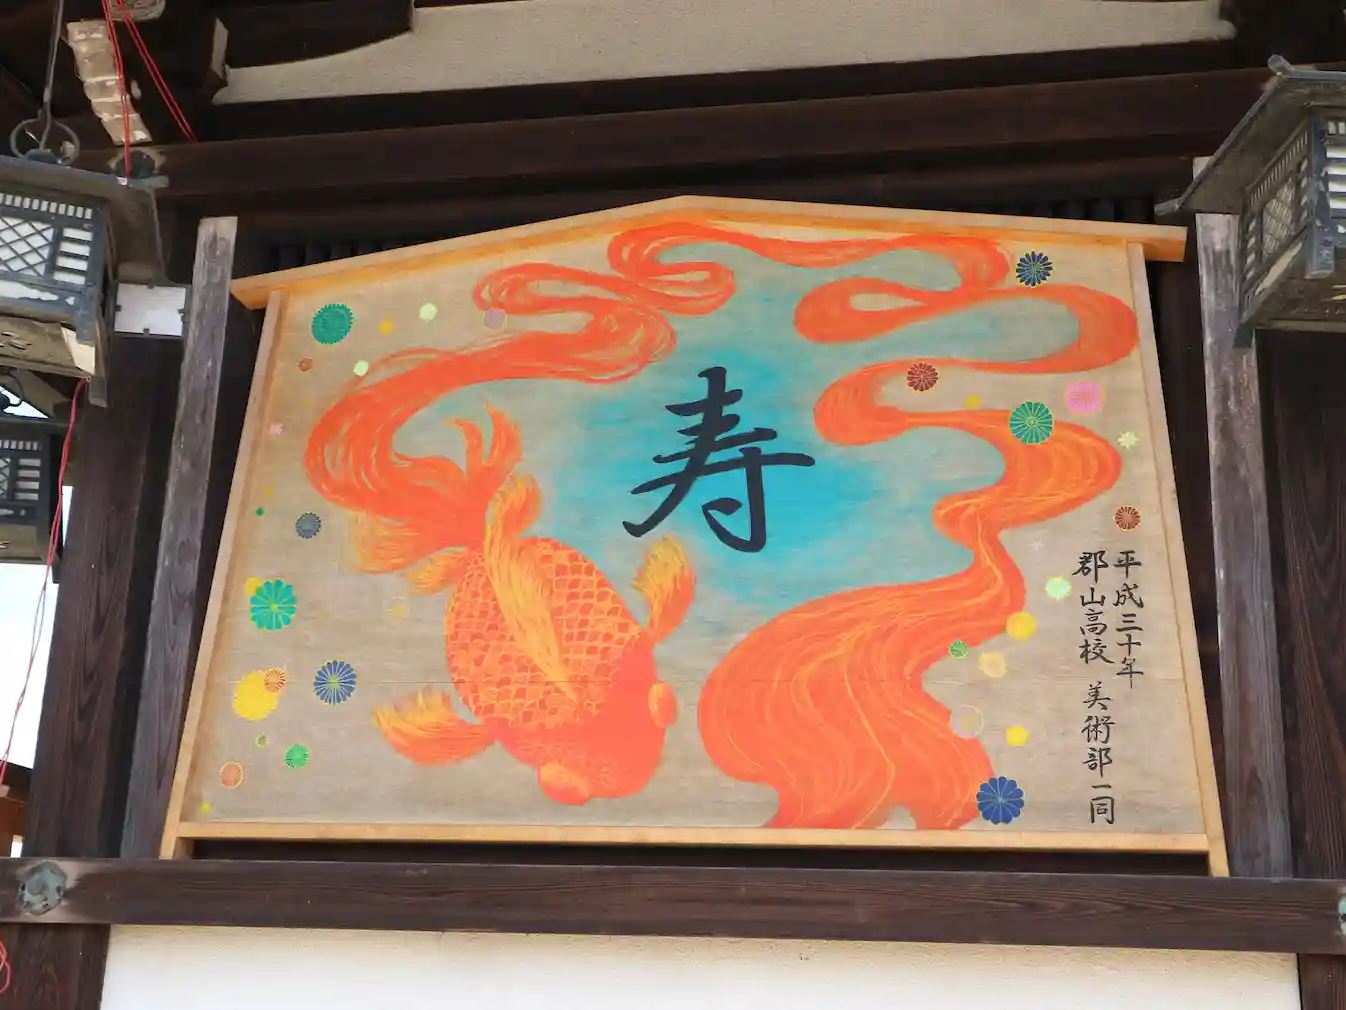 寿
平成三十年
郡山高校 美術部一同